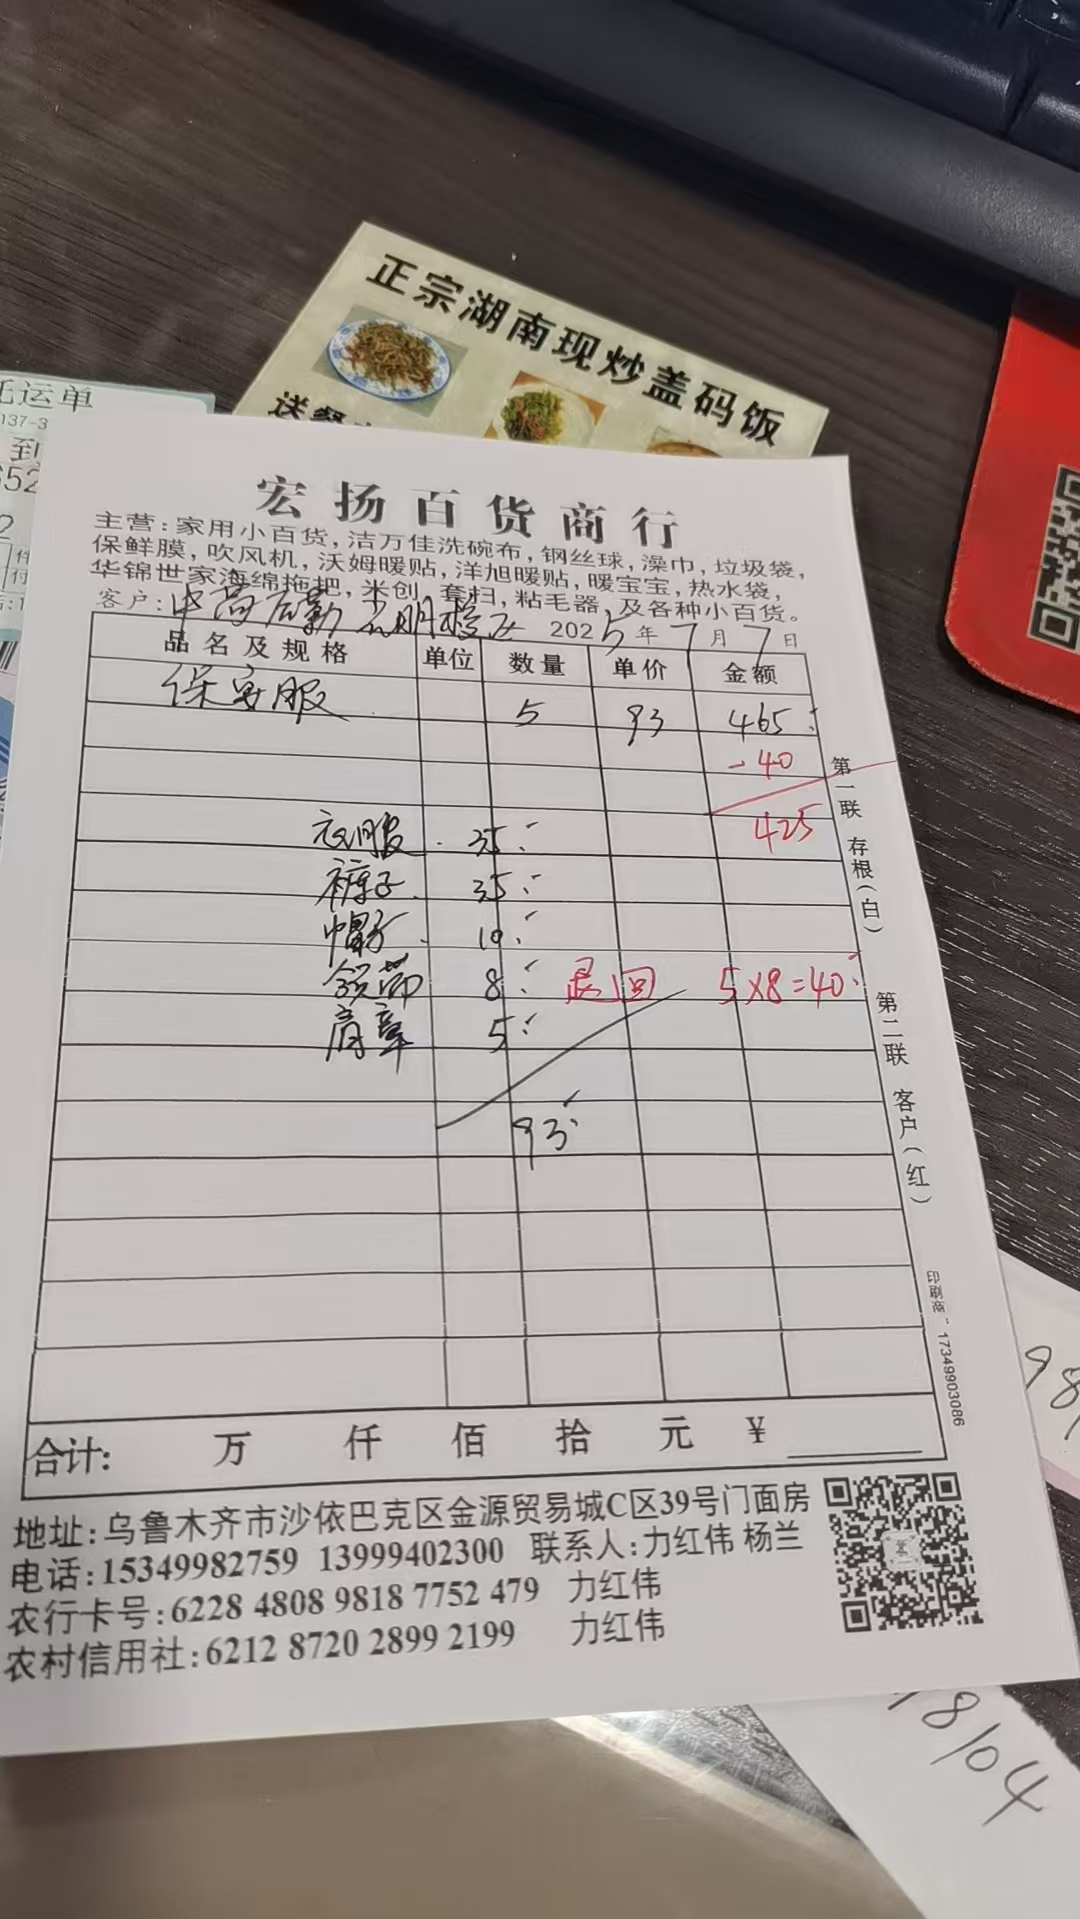 正宗湖南现炒盖码饭
送餐
托运单
137-3
到
652
宏扬百货商行
主营:家用小百货,洁万佳洗碗布,钢丝球,澡巾,垃圾袋,
保鲜膜,吹风机,沃姆暖贴,洋旭暖贴,暖宝宝,热水袋,
华锦世家海绵拖把,米创,套扫,粘毛器,及各种小百货。
客户:中高后勤 光明校区 2025年7月7日
品名及规格 单位 数量 单价 金额
保安服 5 93 465
-40
425
衣服 35
裤子 35
帽子 10
领带 8 退回 5x8=40
肩章 5
93
第一联 存根(白)
第二联 客户(红)
印刷商:17349903086
合计: 万 仟 佰 拾 元 ¥
地址:乌鲁木齐市沙依巴克区金源贸易城C区39号门面房
电话:15349982759 13999402300 联系人:力红伟 杨兰
农行卡号:6228 4808 9818 7752 479 力红伟
农村信用社:6212 8720 2899 2199 力红伟
98
98104